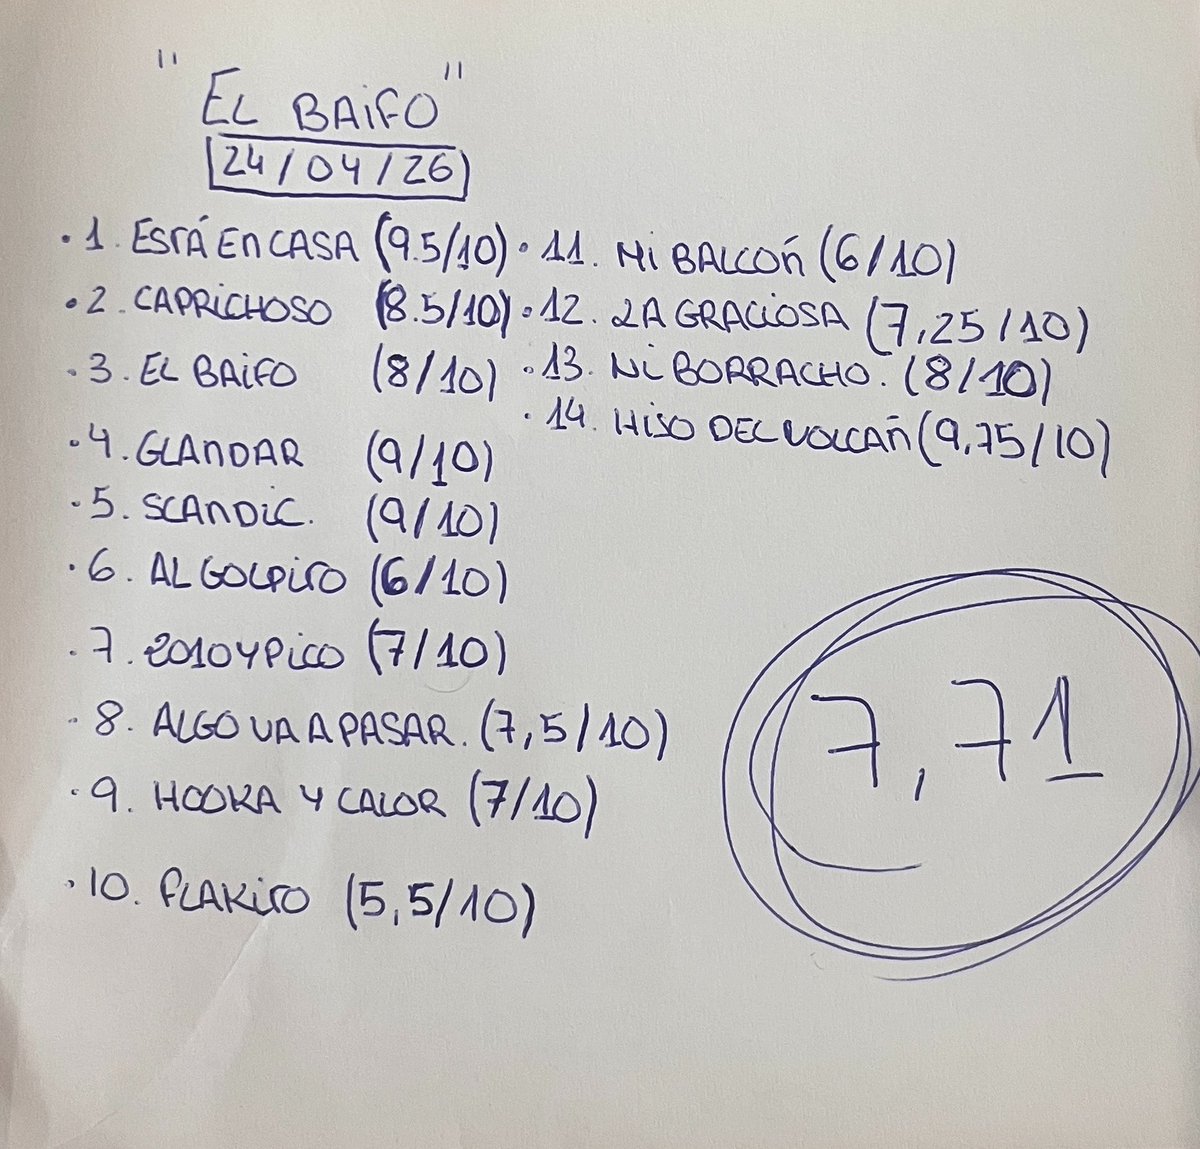 "EL BAIFO"
24/04/26
· 1. ESTÁ EN CASA (9.5/10)
· 2. CAPRICHOSO (8.5/10)
· 3. EL BAIFO (8/10)
· 4. GLANDAR (9/10)
· 5. SCANDIC. (9/10)
· 6. AL GOLPITO (6/10)
· 7. 2010 Y PICO (7/10)
· 8. ALGO VA A PASAR. (7,5/10)
· 9. HOOKA Y CALOR (7/10)
· 10. FLAKITO (5,5/10)
· 11. MI BALCÓN (6/10)
· 12. LA GRACIOSA (7,25/10)
· 13. NI BORRACHO. (8/10)
· 14. HIJO DEL VOLCÁN (9,75/10)
7,71